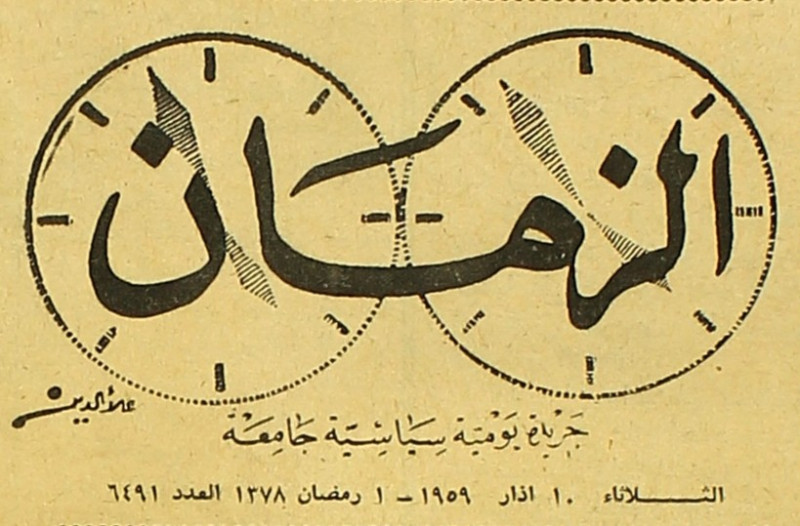 الزمان
علاءالدين
جَريدة يَوميّة سِيَاسِيّة جَامِعَة
الثـــلاثاء ١٠ اذار ١٩٥٩ - ١ رمضان ١٣٧٨ العدد ٦٤٩١